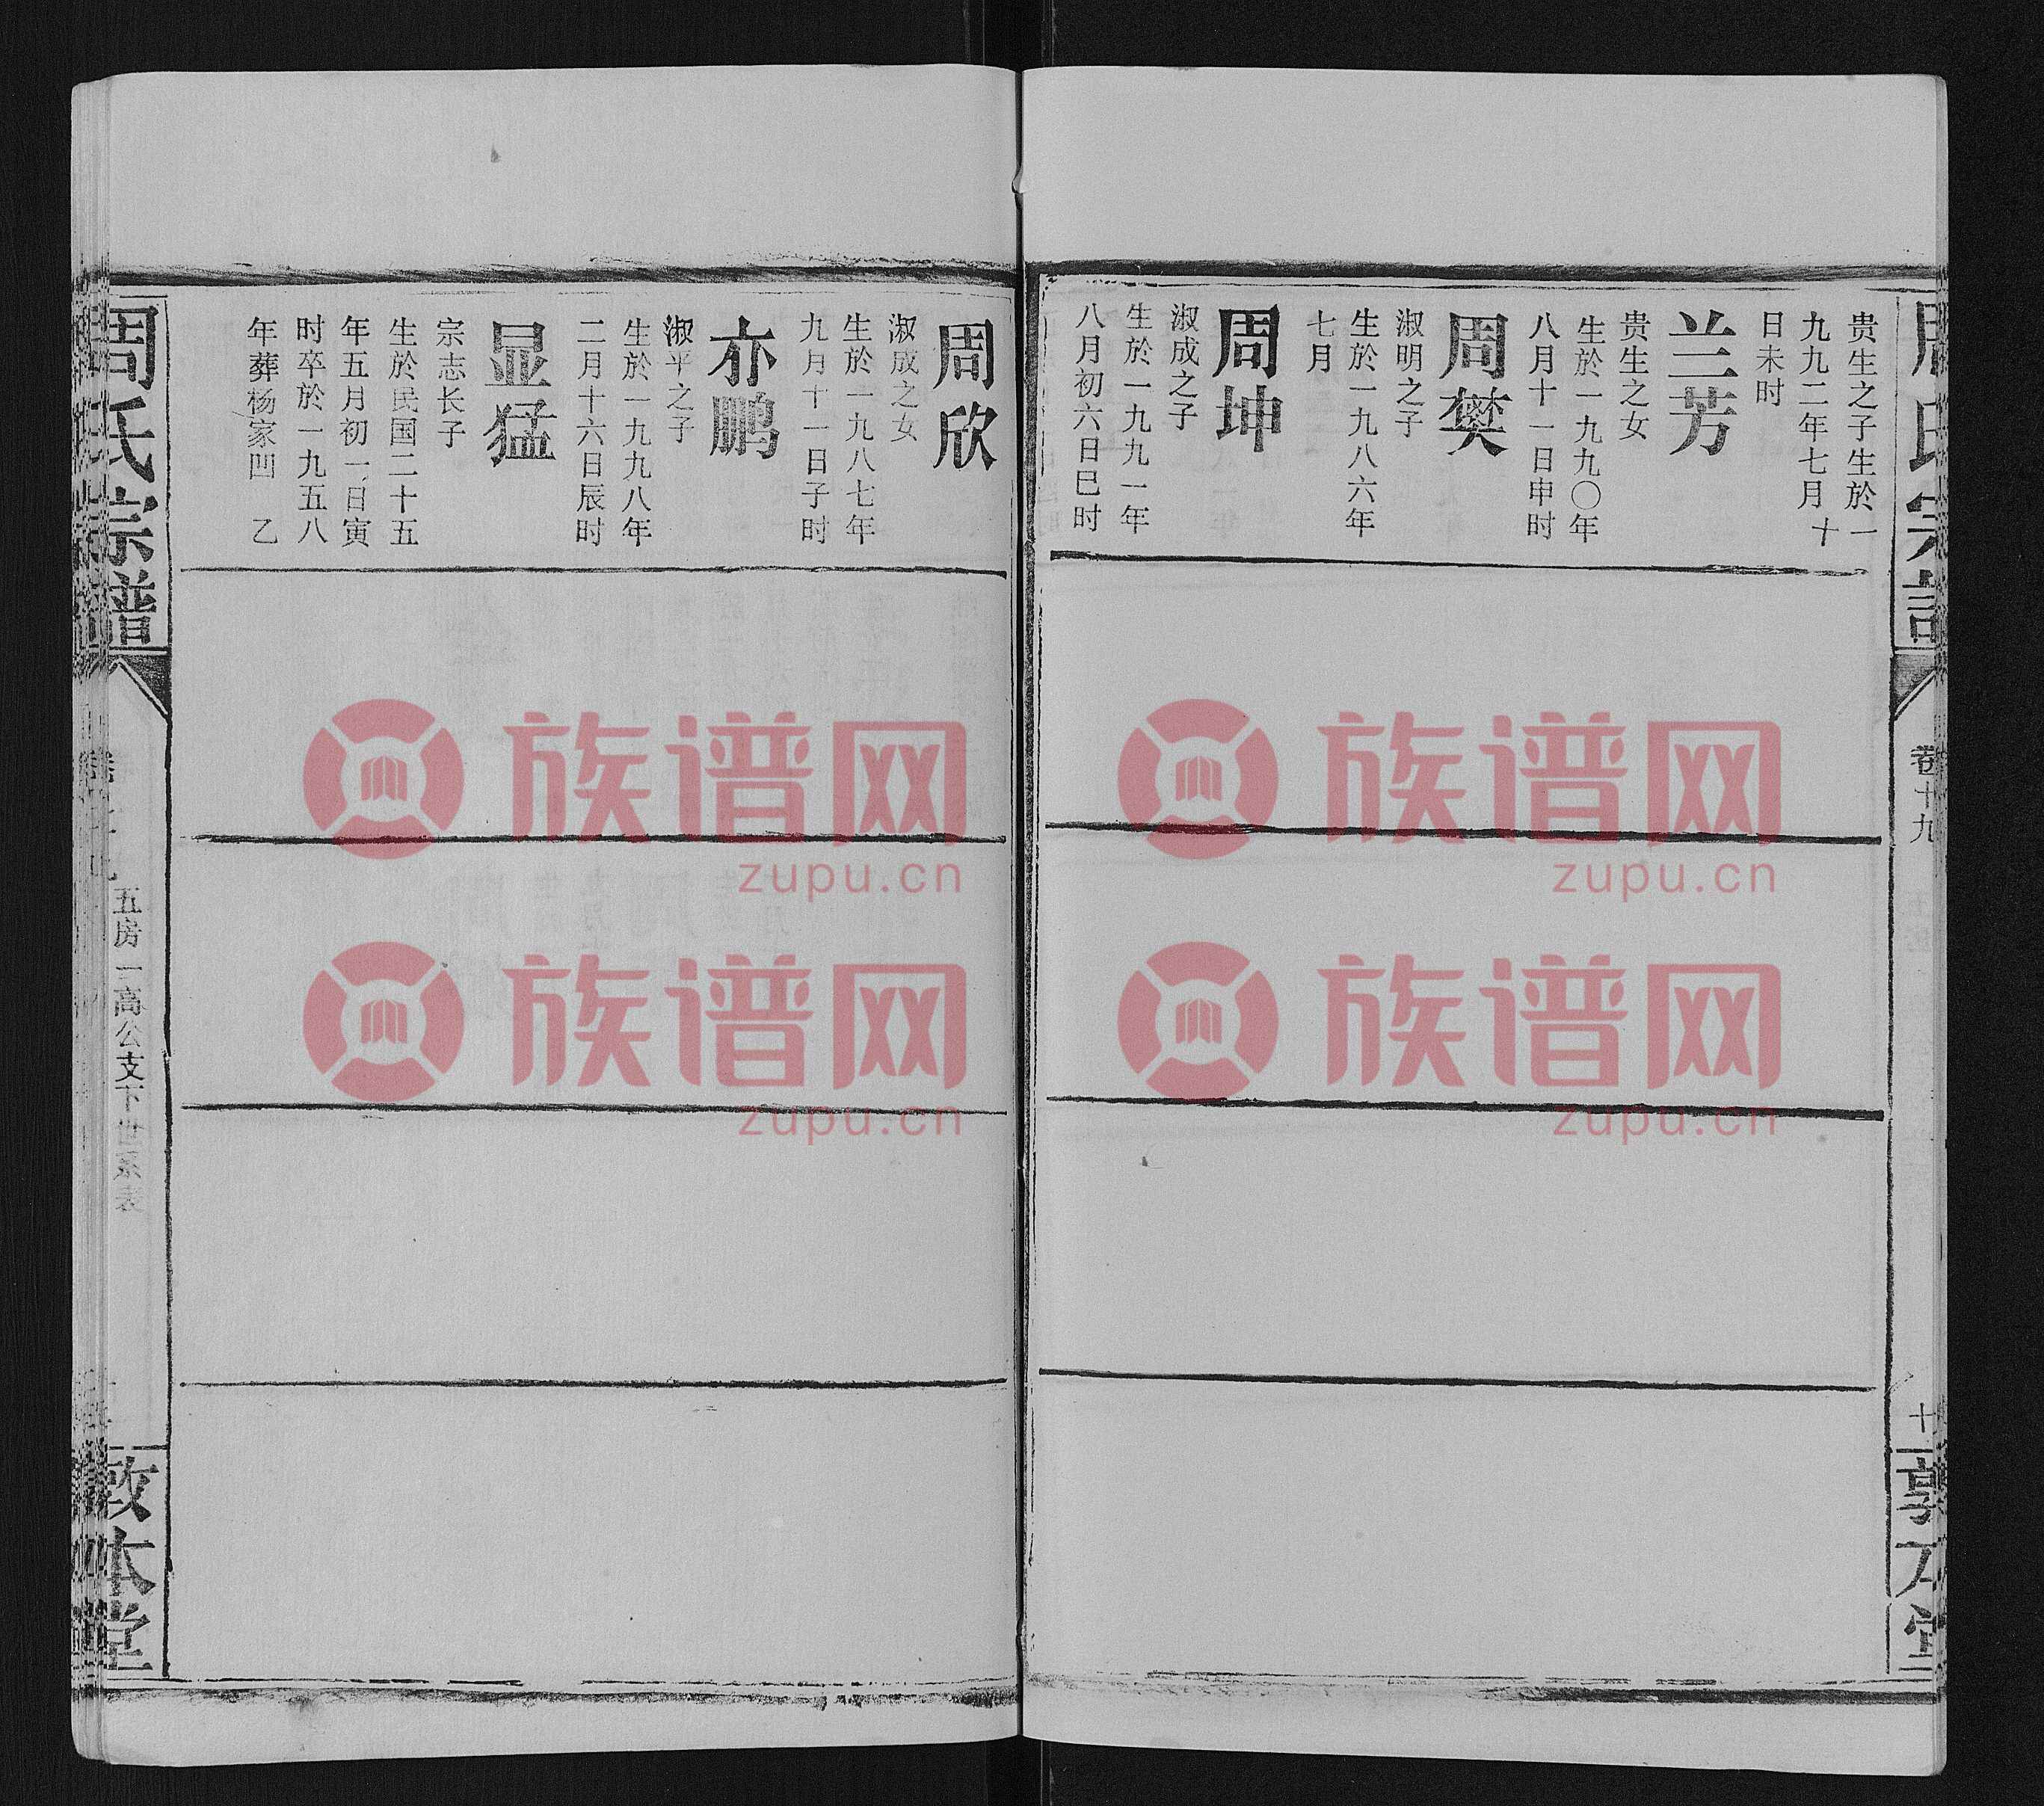 周氏宗譜
卷十九
十
敦本堂
贵生之子生於一
九九二年七月十
日未时
兰芳
贵生之女
生於一九九〇年
八月十一日申时
周樊
淑明之子
生於一九八六年
七月
周坤
淑成之子
生於一九九一年
八月初六日巳时
周欣
淑成之女
生於一九八七年
九月十一日子时
亦鹏
淑平之子
生於一九九八年
二月十六日辰时
显猛
宗志长子
生於民国二十五
年五月初一日寅
时卒於一九五八
年葬杨家凹 乙
周氏宗譜
五房一高公支下世系表
敦本堂
族谱网
zupu.cn
族谱网
zupu.cn
族谱网
zupu.cn
族谱网
zupu.cn